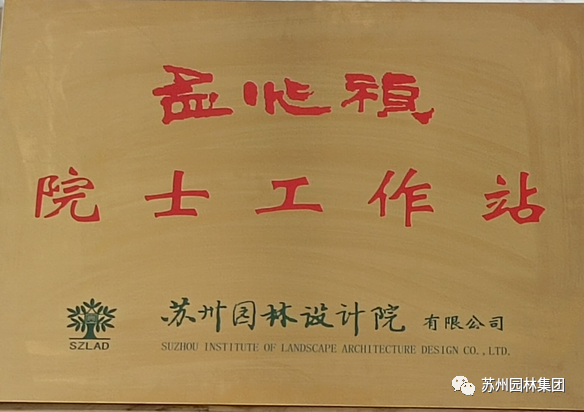 孟兆祯
院士工作站
SZLAD
苏州园林设计院 有限公司
SUZHOU INSTITUTE OF LANDSCAPE ARCHITECTURE DESIGN CO.,LTD.
苏州园林集团